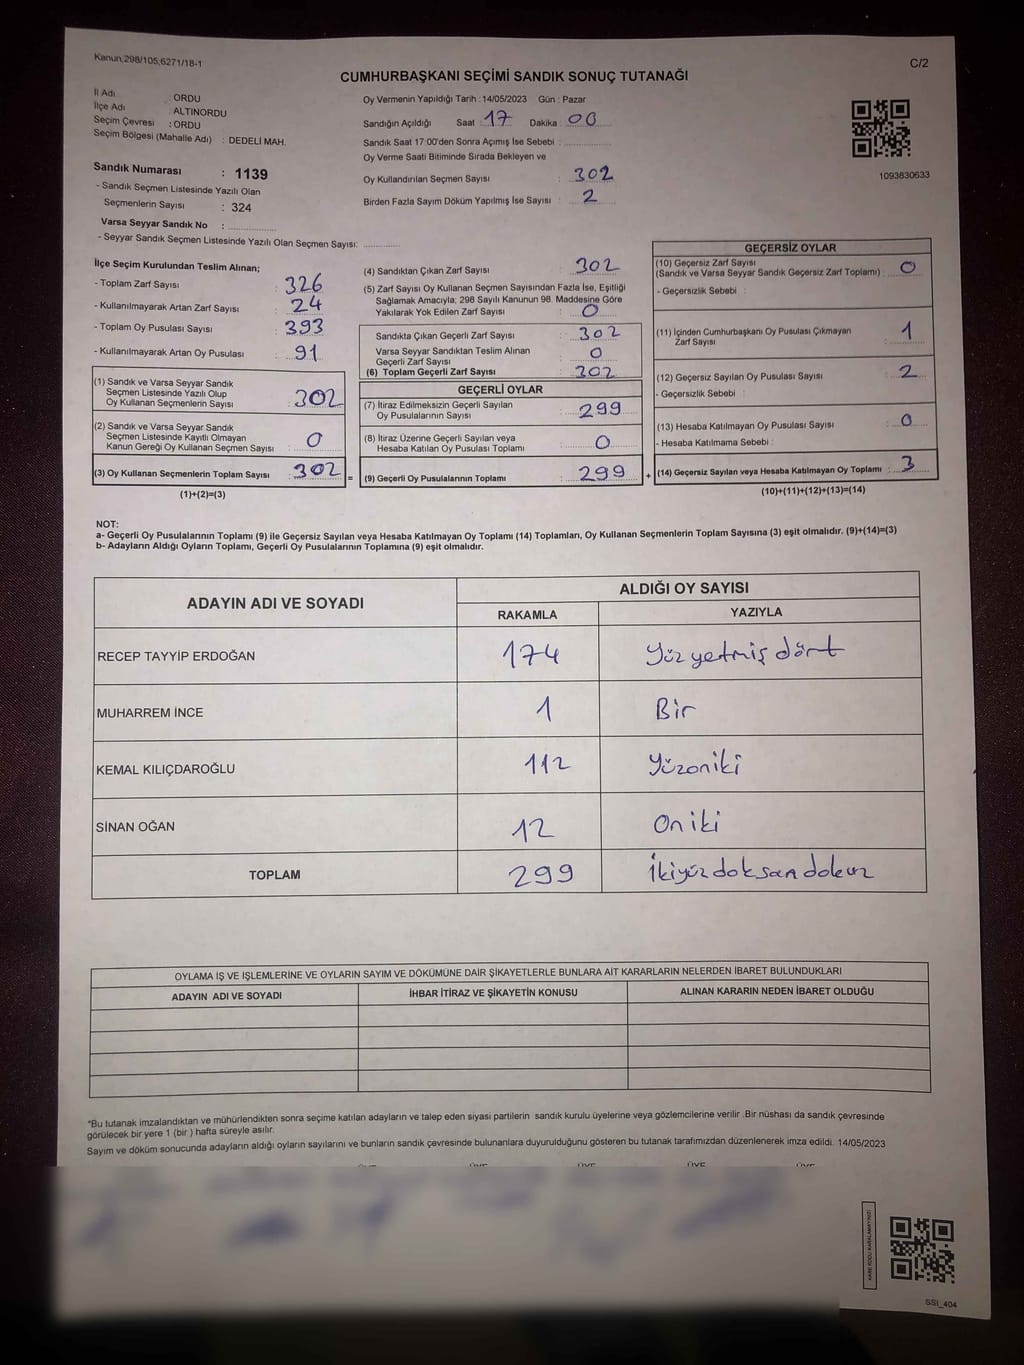 Kanun,298/105,6271/18-1
C/2
CUMHURBAŞKANI SEÇİMİ SANDIK SONUÇ TUTANAĞI
İl Adı : ORDU
İlçe Adı : ALTINORDU
Seçim Çevresi : ORDU
Seçim Bölgesi (Mahalle Adı) : DEDELİ MAH.
Oy Vermenin Yapıldığı Tarih : 14/05/2023 Gün : Pazar
Sandığın Açıldığı Saat 17 Dakika 00
Sandık Saat 17:00'den Sonra Açımış İse Sebebi :
Oy Verme Saati Bitiminde Sırada Bekleyen ve
Oy Kullandırılan Seçmen Sayısı : 302
Birden Fazla Sayım Döküm Yapılmış İse Sayısı : 2
1093830633
Sandık Numarası : 1139
- Sandık Seçmen Listesinde Yazılı Olan
Seçmenlerin Sayısı : 324
Varsa Seyyar Sandık No :
- Seyyar Sandık Seçmen Listesinde Yazılı Olan Seçmen Sayısı:
İlçe Seçim Kurulundan Teslim Alınan;
- Toplam Zarf Sayısı : 326
- Kullanılmayarak Artan Zarf Sayısı : 24
- Toplam Oy Pusulası Sayısı : 393
- Kullanılmayarak Artan Oy Pusulası : 91
(1) Sandık ve Varsa Seyyar Sandık
Seçmen Listesinde Yazılı Olup
Oy Kullanan Seçmenlerin Sayısı : 302
(2) Sandık ve Varsa Seyyar Sandık
Seçmen Listesinde Kayıtlı Olmayan
Kanun Gereği Oy Kullanan Seçmen Sayısı : 0
(3) Oy Kullanan Seçmenlerin Toplam Sayısı : 302
(1)+(2)=(3)
(4) Sandıktan Çıkan Zarf Sayısı : 302
(5) Zarf Sayısı Oy Kullanan Seçmen Sayısından Fazla İse, Eşitliği
Sağlamak Amacıyla; 298 Sayılı Kanunun 98. Maddesine Göre
Yakılarak Yok Edilen Zarf Sayısı : 0
Sandıkta Çıkan Geçerli Zarf Sayısı : 302
Varsa Seyyar Sandıktan Teslim Alınan
Geçerli Zarf Sayısı : 0
(6) Toplam Geçerli Zarf Sayısı : 302
GEÇERLİ OYLAR
(7) İtiraz Edilmeksizin Geçerli Sayılan
Oy Pusulalarının Sayısı : 299
(8) İtiraz Üzerine Geçerli Sayılan veya
Hesaba Katılan Oy Pusulası Toplamı : 0
= (9) Geçerli Oy Pusulalarının Toplamı : 299
GEÇERSİZ OYLAR
(10) Geçersiz Zarf Sayısı
(Sandık ve Varsa Seyyar Sandık Geçersiz Zarf Toplamı) : 0
- Geçersizlik Sebebi :
(11) İçinden Cumhurbaşkanı Oy Pusulası Çıkmayan
Zarf Sayısı : 1
(12) Geçersiz Sayılan Oy Pusulası Sayısı : 2
- Geçersizlik Sebebi :
(13) Hesaba Katılmayan Oy Pusulası Sayısı : 0
- Hesaba Katılmama Sebebi :
+ (14) Geçersiz Sayılan veya Hesaba Katılmayan Oy Toplamı : 3
(10)+(11)+(12)+(13)=(14)
NOT:
a- Geçerli Oy Pusulalarının Toplamı (9) ile Geçersiz Sayılan veya Hesaba Katılmayan Oy Toplamı (14) Toplamları, Oy Kullanan Seçmenlerin Toplam Sayısına (3) eşit olmalıdır. (9)+(14)=(3)
b- Adayların Aldığı Oyların Toplamı, Geçerli Oy Pusulalarının Toplamına (9) eşit olmalıdır.
ADAYIN ADI VE SOYADI
ALDIĞI OY SAYISI
RAKAMLA YAZIYLA
RECEP TAYYİP ERDOĞAN 174 Yüzyetmiş dört
MUHARREM İNCE 1 Bir
KEMAL KILIÇDAROĞLU 112 Yüzoniki
SİNAN OĞAN 12 Oniki
TOPLAM 299 İkiyüzdoksandokuz
OYLAMA İŞ VE İŞLEMLERİNE VE OYLARIN SAYIM VE DÖKÜMÜNE DAİR ŞİKAYETLERLE BUNLARA AİT KARARLARIN NELERDEN İBARET BULUNDUKLARI
ADAYIN ADI VE SOYADI İHBAR İTİRAZ VE ŞİKAYETİN KONUSU ALINAN KARARIN NEDEN İBARET OLDUĞU
*Bu tutanak imzalandıktan ve mühürlendikten sonra seçime katılan adayların ve talep eden siyasi partilerin sandık kurulu üyelerine veya gözlemcilerine verilir .Bir nüshası da sandık çevresinde
görülecek bir yere 1 (bir ) hafta süreyle asılır.
Sayım ve döküm sonucunda adayların aldığı oyların sayılarını ve bunların sandık çevresinde bulunanlara duyurulduğunu gösteren bu tutanak tarafımızdan düzenlenerek imza edildi. 14/05/2023
ÜYE ÜYE ÜYE ÜYE ÜYE
KARE KODU KARALAMAYINIZ!
SSI_404